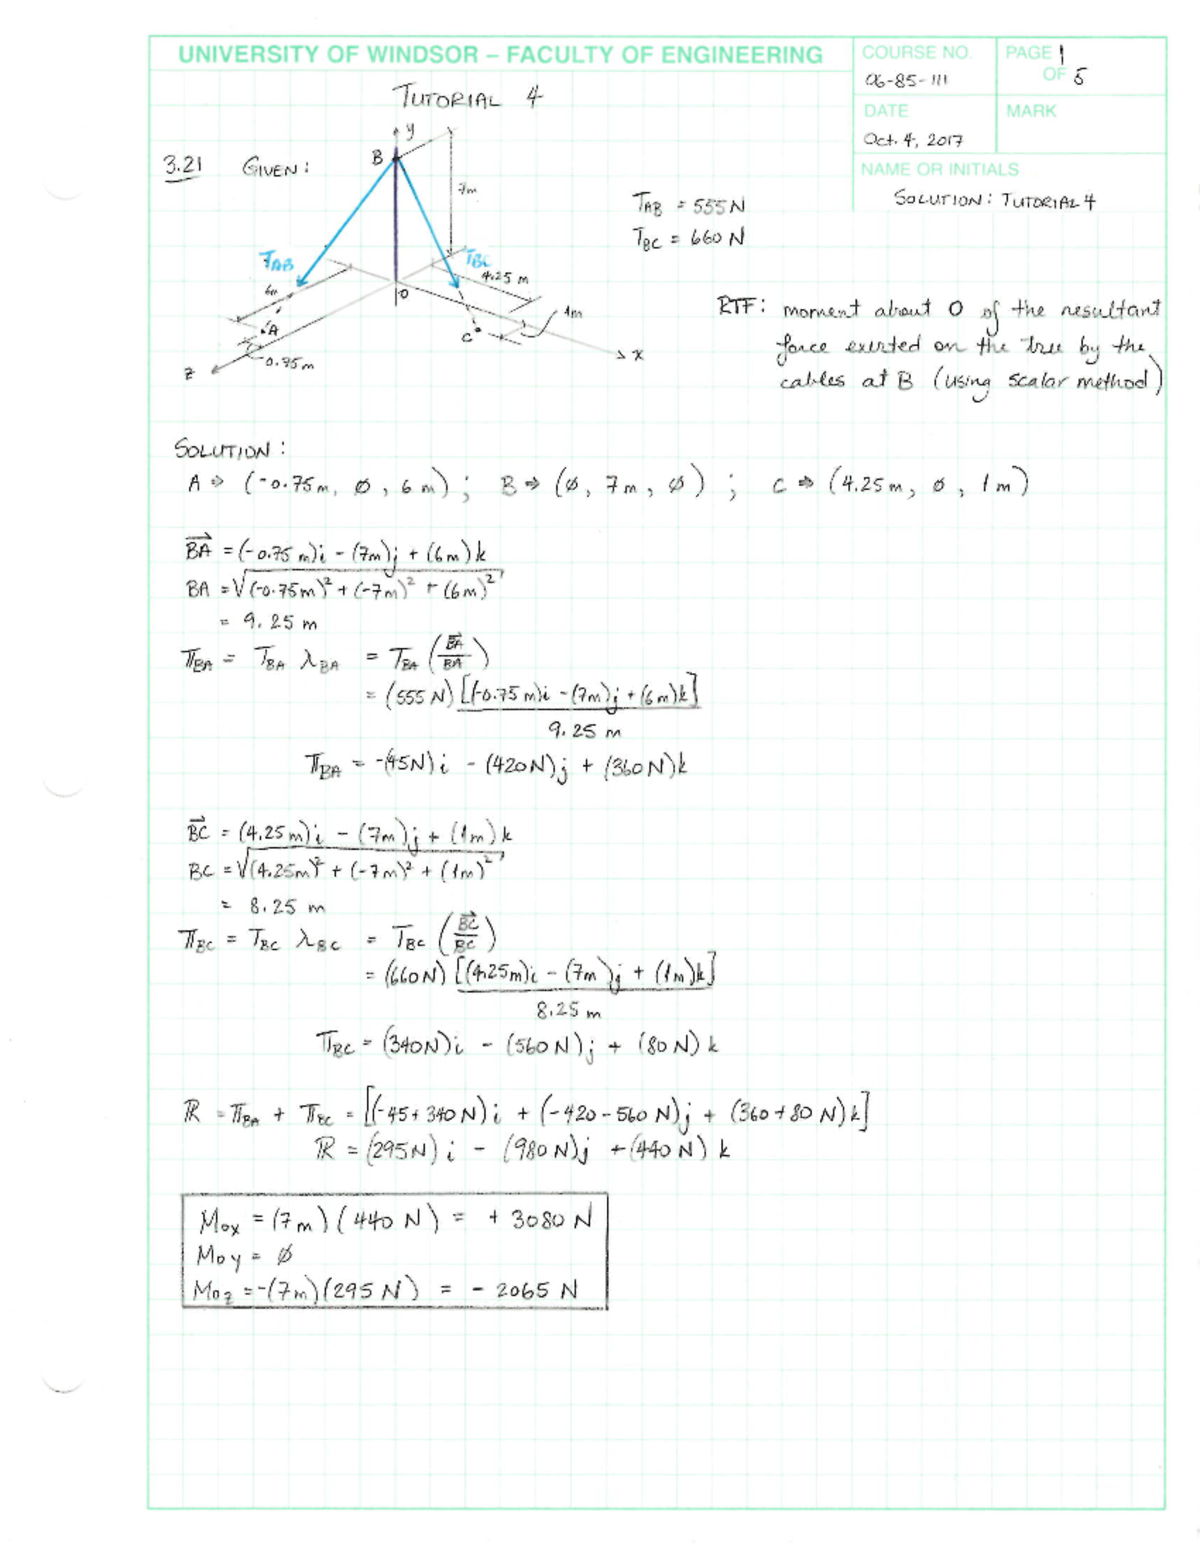 UNIVERSITY OF WINDSOR – FACULTY OF ENGINEERING
COURSE NO.
06-85-111
PAGE 1
OF 5
DATE
Oct. 4, 2017
MARK
NAME OR INITIALS
SOLUTION: TUTORIAL 4
TUTORIAL 4
3.21 GIVEN:
y
B
7m
TAB
TBC
4.25 m
6m
O
1m
A
C
0.75m
x
z
TAB = 555N
TBC = 660 N
RTF: moment about O of the resultant
force exerted on the tree by the
cables at B (using scalar method)
SOLUTION:
A ⇒ (-0.75m, ∅, 6m); B ⇒ (∅, 7m, ∅); C ⇒ (4.25m, ∅, 1m)
BA = (-0.75 m)i - (7m)j + (6m)k
BA = √(-0.75m)² + (-7m)² + (6m)²
= 9.25 m
TBA = TBA λBA = TBA (BA/BA)
= (555 N) [(-0.75 m)i - (7m)j + (6m)k]
9.25 m
TBA = -(45N)i - (420N)j + (360N)k
BC = (4.25m)i - (7m)j + (1m)k
BC = √(4.25m)² + (-7m)² + (1m)²
= 8.25 m
TBC = TBC λBC = TBC (BC/BC)
= (660N) [(4.25m)i - (7m)j + (1m)k]
8.25 m
TBC = (340N)i - (560N)j + (80N)k
R = TBA + TBC = [(-45+340N)i + (-420-560 N)j + (360+80 N)k]
R = (295N)i - (980N)j + (440N)k
Mox = (7m)(440 N) = + 3080 N
Moy = ∅
Moz = -(7m)(295 N) = - 2065 N